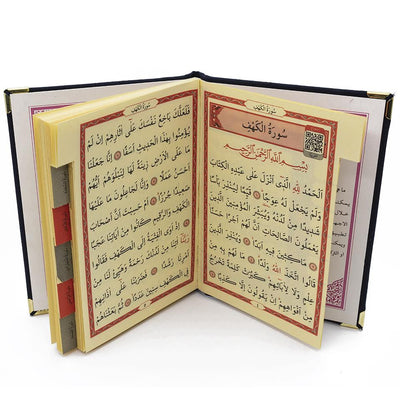 سُورَةُ الكَهْفِ
سُورَةُ الكَهْفِ
بِسْمِ اللَّهِ الرَّحْمَنِ الرَّحِيمِ
اَلْحَمْدُ لِلّٰهِ الَّذٖى اَنْزَلَ عَلٰى عَبْدِهِ الْكِتَابَ
وَلَمْ يَجْعَلْ لَهُ عِوَجًا ۞ قَيِّمًا لِيُنْذِرَ بَاْسًا
شَدٖيدًا مِنْ لَدُنْهُ وَيُبَشِّرَ الْمُؤْمِنٖينَ الَّذٖينَ
يَعْمَلُونَ الصَّالِحَاتِ اَنَّ لَهُمْ اَجْرًا حَسَنًا
۞ مَاكِثٖينَ فٖيهِ اَبَدًا ۞ وَيُنْذِرَ الَّذٖينَ
قَالُوا اتَّخَذَ اللّٰهُ وَلَدًا ۞ مَا لَهُمْ بِهٖ مِنْ
عِلْمٍ وَلَا لِاٰبَائِهِمْ كَبُرَتْ كَلِمَةً تَخْرُجُ
مِنْ اَفْوَاهِهِمْ اِنْ يَقُولُونَ اِلَّا كَذِبًا ۞
سُورَةُ الكَهْفِ
فَلَعَلَّكَ بَاخِعٌ نَفْسَكَ عَلٰى اٰثَارِهِمْ اِنْ لَمْ
يُؤْمِنُوا بِهٰذَا الْحَدٖيثِ اَسَفًا ۞ اِنَّا جَعَلْنَا
مَا عَلَى الْاَرْضِ زٖينَةً لَهَا لِنَبْلُوَهُمْ اَيُّهُمْ
اَحْسَنُ عَمَلًا ۞ وَاِنَّا لَجَاعِلُونَ مَا عَلَيْهَا
صَعٖيدًا جُرُزًا ۞ اَمْ حَسِبْتَ اَنَّ اَصْحَابَ
الْكَهْفِ وَالرَّقٖيمِ كَانُوا مِنْ اٰيَاتِنَا عَجَبًا
۞ اِذْ اَوَى الْفِتْيَةُ اِلَى الْكَهْفِ فَقَالُوا
رَبَّنَا اٰتِنَا مِنْ لَدُنْكَ رَحْمَةً وَهَيِّئْ لَنَا مِنْ
اَمْرِنَا رَشَدًا ۞ فَضَرَبْنَا عَلٰى اٰذَانِهِمْ
فِى الْكَهْفِ سِنٖينَ عَدَدًا ۞ ثُمَّ بَعَثْنَاهُمْ